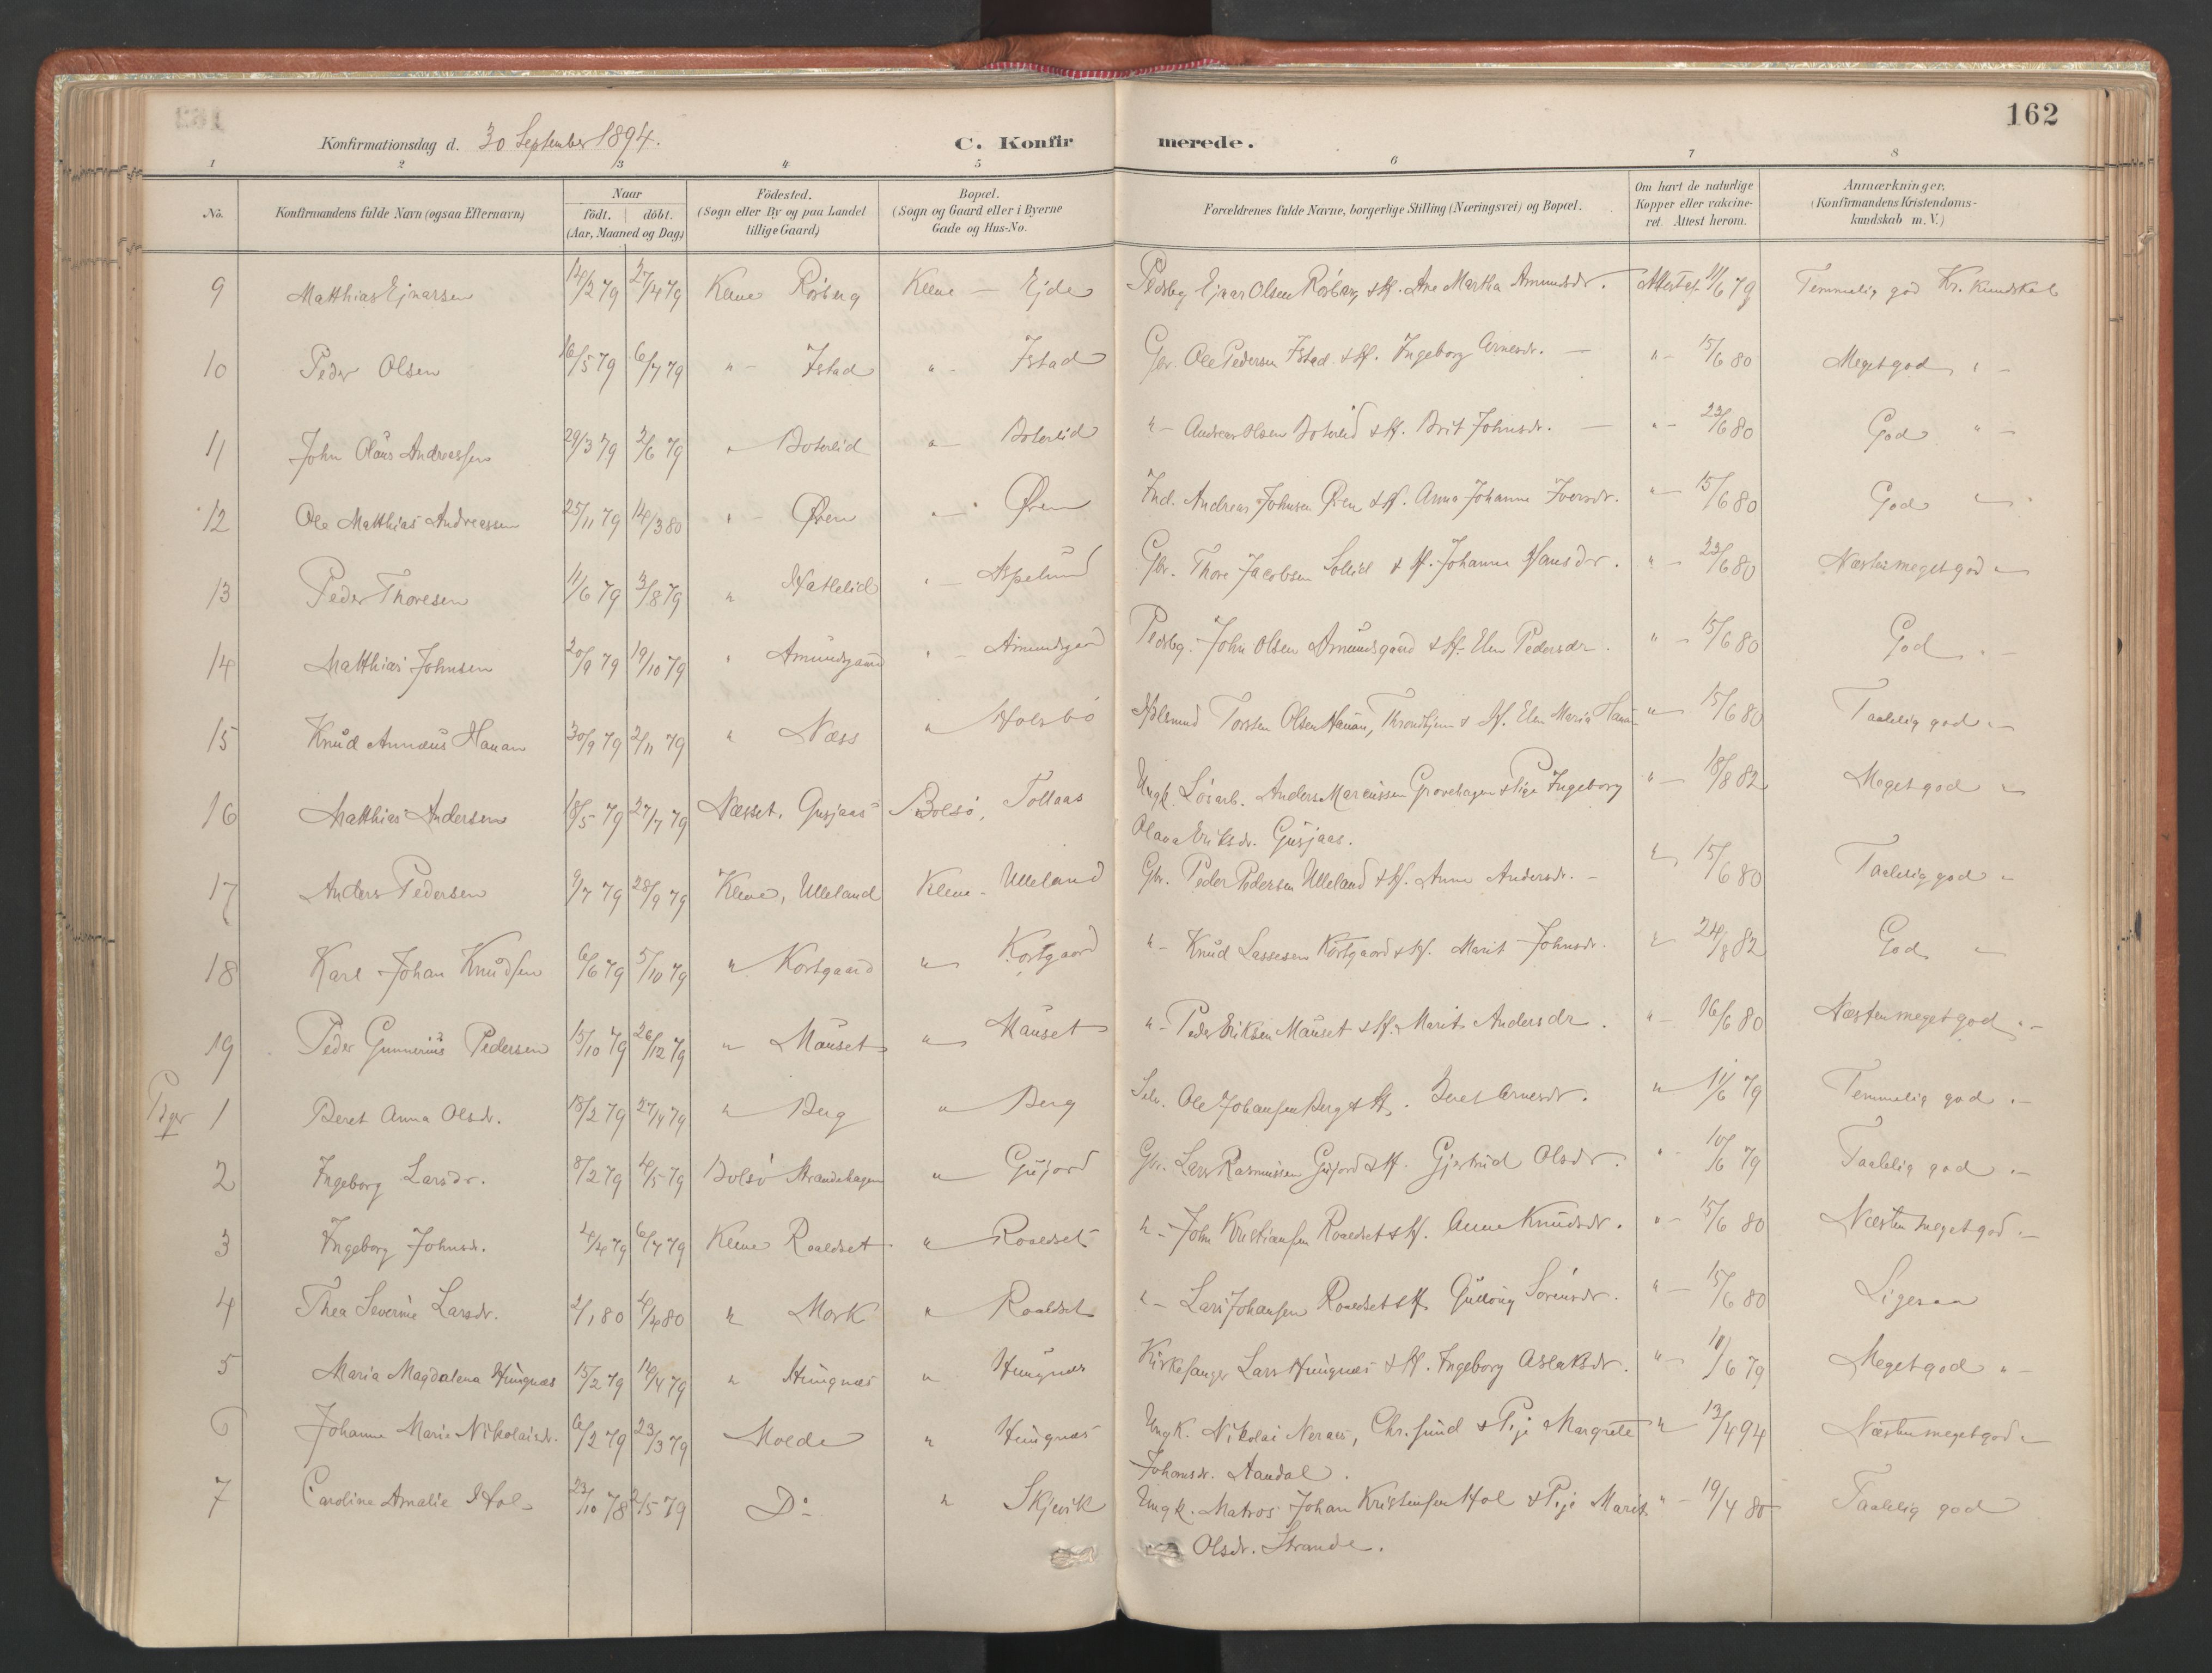 162
Konfirmationsdag d. 30 September 1894. C. Konfirmerede.
1 2 3 4 5 6 7 8
No. Konfirmandens fulde Navn (ogsaa Efternavn) Naar födt. döbt. (Aar, Maaned og Dag) Födested. (Sogn eller By og paa Landet tillige Gaard) Bopæl. (Sogn og Gaard eller i Byerne Gade og Hus-No. Forældrenes fulde Navne, borgerlige Stilling (Næringsvei) og Bopæl. Om havt de naturlige Kopper eller vakcineret. Attest herom. Anmærkninger. (Konfirmandens Kristendomskundskab m. V.)
9 Matthias Ejnarsen 14/2 79 27/4 79 Kleve Rösberg Kleve — Ejde Pladsbg Ejnar Olsen Rösberg & H. Ane Martha Amundsdr. Attest af 11/6 79 Temmelig god Kr. Kundskab
10 Peder Olsen 16/5 79 6/7 79 " - Istad " - Istad Gbr. Ole Pedersen Istad & H. Ingeborg Arnesdr. — " - 15/6 80 Meget god " -
11 John Olaus Andreassen 29/3 79 2/6 79 " Boterlid " - Boterlid " - Andreas Olsen Boterlid & H. Brit Johnsdr. — " - 23/6 80 God " -
12 Ole Matthias Andreassen 25/11 79 14/3 80 " - Øren " - Øren Ind. Andreas Johnsen Øren & H. Anna Johanna Iversdr. " - 15/6 80 God " -
13 Peder Thoresen 11/6 79 3/8 79 " Hatlelid " - Aspelund Gbr. Thore Jacobsen Sollid & H. Johanna Hansdr. " - 23/6 80 Næsten meget god "
14 Matthias Johnsen 20/9 79 19/10 79 " Amundsgaard " - Amundsgard Pladsbg. John Olsen Amundsgaard & H. Elen Pedersdr. " - 15/6 80 God " -
15 Knud Annæus Hanan 30/9 79 2/11 79 " Næss " Holsbö Torsten Olsen Hanan, Throndhjem & H. Elen Maria " - 15/6 80 Taalelig god "
16 Matthias Andersen 18/5 79 27/7 79 Næsset, Gusjaas Bolsö, Tollaas Ungk. Lösarb. Anders Marcussen Grovehagen & Pige Ingeborg " - 18/8 82 Meget god "
Olava Eriksdr. Gusjaas.
17 Anders Pedersen 9/7 79 28/9 79 Kleve, Ulleland Kleve - Ulleland Gbr. Peder Pedersen Ulleland & H. Anne Andersdr. - " 15/6 80 Taalelig god "
18 Karl Johan Knudsen 6/6 79 5/10 79 " Kortgaard " Kortgaard " - Knud Lassesen Kortgaard & H. Marit Johnsdr. " 24/8 82 God "
19 Peder Gunnerius Pedersen 15/10 79 26/12 79 " Mauset " Mauset " - Peder Eriksen Mauset & H. Marit Andersdr. " - 16/6 80 Næsten meget god " -
Piger 1 Beret Anna Olsdr. 18/2 79 27/4 79 " Berg " Berg Selv. Ole Johansen Berg & H. Beret Arnesdr. " 11/6 79 Temmelig god " -
2 Ingeborg Larsdr. 8/2 79 4/5 79 Bolsö Strandehagen " Gujord Gbr. Lars Rasmussen Gujord & H. Gjertrud Olsdr. " - 10/6 79 Taalelig god " -
3 Ingeborg Johnsdr. 4/4 79 6/7 79 Kleve Roaldset " Roaldset " - John Kristiansen Roaldset & H. Anne Knudsdr. " - 15/6 80 Næsten meget god " -
4 Thea Severine Larsdr. 2/1 80 4/4 80 " Mork " Roaldset " - Lars Johansen Roaldset & H. Gulloug Sörensdr. " - 15/6 80 Ligesaa
5 Maria Magdalena Hungnæs 15/2 79 14/4 79 " Hungnæs " Hungnæs Kirkesanger Lars Hungnæs & H. Ingeborg Aslaksdr. " - 11/6 79 Meget god " -
6 Johanne Marie Nikolaisdr. 6/2 79 23/3 79 Molde " Hungnæs Ungk. Nikolai Neraas, Chr.sund & Pige Margrete " 13/4 94 Næsten meget god "
Johansdr. Aandal.
7 Caroline Amalie Hol 23/10 78 2/5 79 Do " Skjevik Ungk. Matros Johan Kristensen Hol & Pige Marit " - 19/4 80 Taalelig god
Olsdr. Strande.